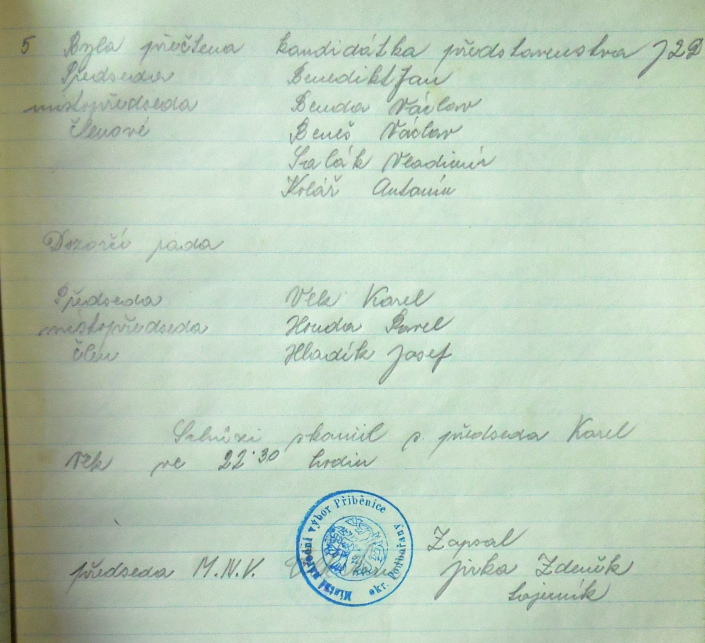 5 Byla přečtena kandidátka představenstva JZD
Předseda Benedikt Jan
místopředseda Benda Václav
členové Beneš Václav
Salák Vladimír
Kolář Antonín
Dozorčí rada
Předseda Vlk Karel
místopředseda Houda Pavel
člen Hladík Josef
Schůzi skončil s. předseda Karel
Vlk ve 22.30 hodin
Místní národní výbor Příběnice
okr. Poděbrady
Zapsal
předseda M.N.V. Jirka Zdeněk